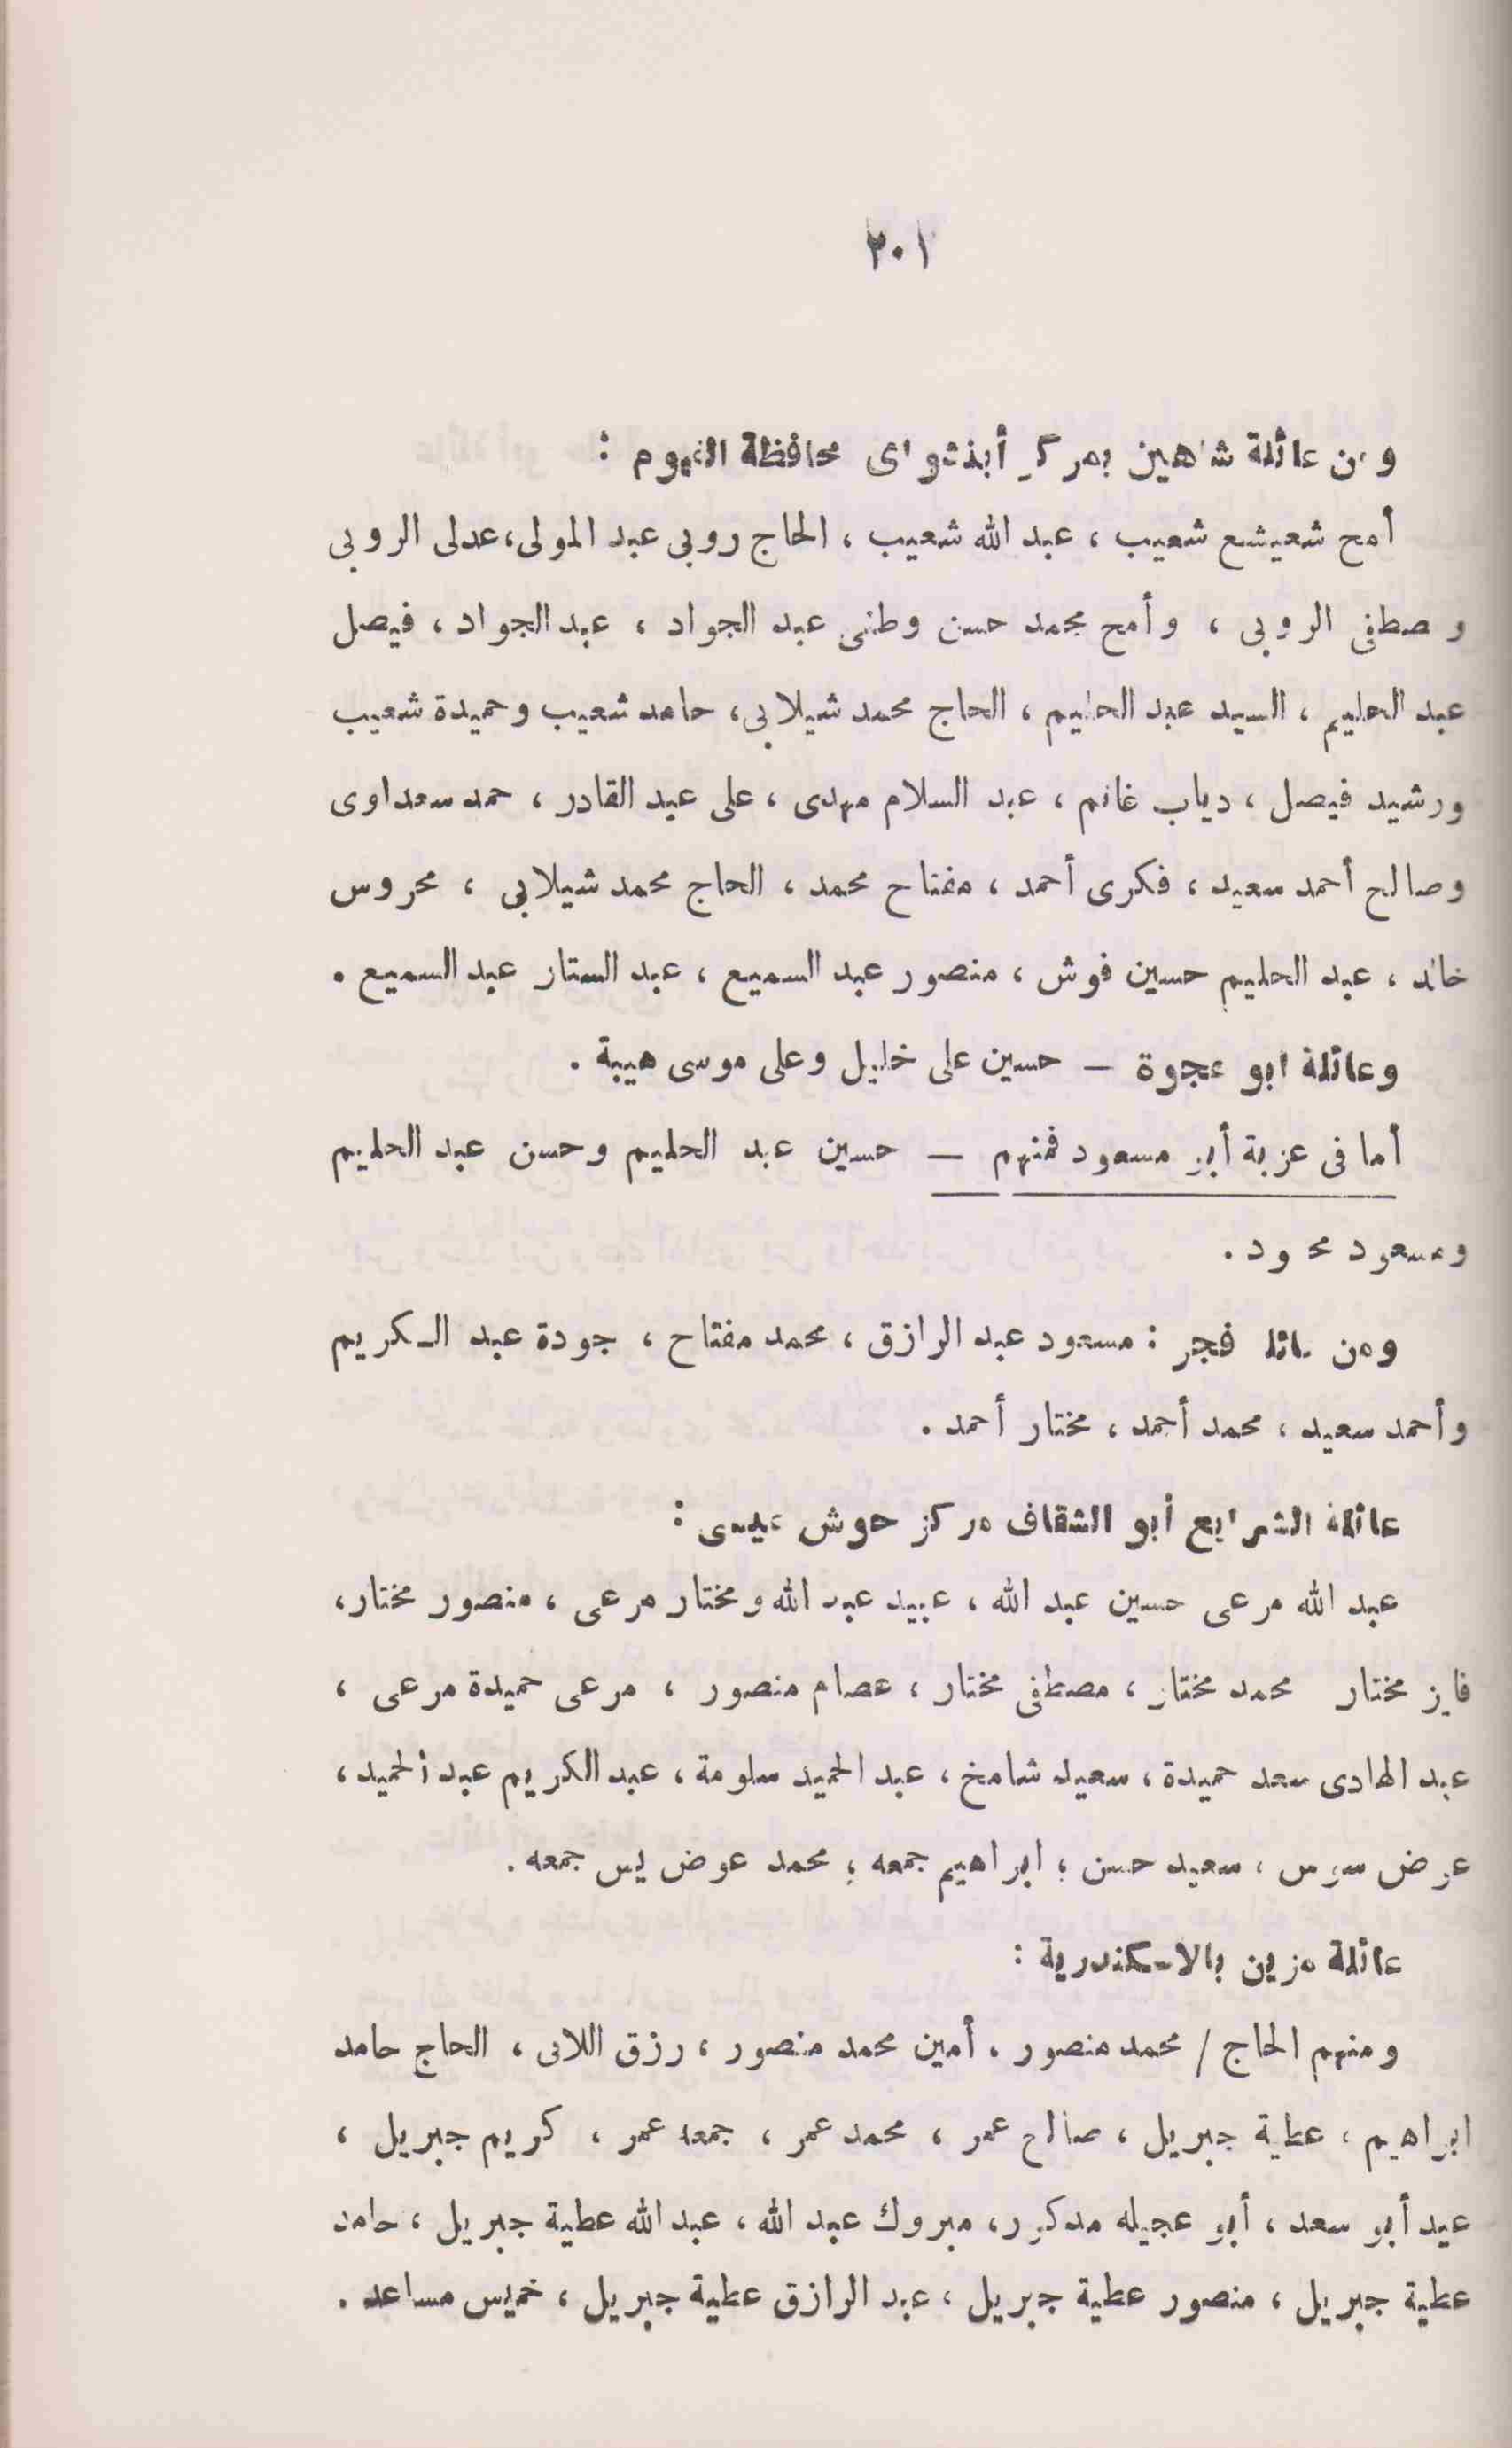 ٢٠١
ومن عائلة شاهين بمركز أبشواى محافظة الفيوم :
أمح شعيشع شعيب ، عبد الله شعيب ، الحاج روبى عبد المولى، عدلى الروبى
و صطفى الروبى ، وأمح محمد حسن وطنى عبد الجواد ، عبد الجواد ، فيصل
عبد الحليم ، السيد عبد الحليم ، الحاج محمد شيلابى، حامد شعيب وحميدة شعيب
ورشيد فيصل ، دياب غانم ، عبد السلام مهدى ، على عبد القادر ، حمد سعداوى
وصالح أحمد سعيد ، فكرى أحمد ، مفتاح محمد ، الحاج محمد شيلابى ، محروس
خالد ، عبد الحليم حسين فوش ، منصور عبد السميع ، عبد الستار عبد السميع .
وعائلة ابو عجوة – حسين على خليل وعلى موسى هيبة .
أما فى عزبة أبو مسعود فمنهم – حسين عبد الحليم وحسن عبد الحليم
ومسعود محمود .
ومن عائلة فجر : مسعود عبد الرازق ، محمد مفتاح ، جودة عبد الكريم
وأحمد سعيد ، محمد أحمد ، مختار أحمد .
عائلة الشرابع أبو الشقاف مركز حوش عيسى :
عبد الله مرعى حسين عبد الله ، عبيد عبد الله ومختار مرعى ، منصور مختار،
فايز مختار محمد مختار ، مصطفى مختار ، عصام منصور ، مرعى حميدة مرعى ،
عبد الهادى سعد حميدة ، سعيد شامخ ، عبد الحميد سلومة ، عبد الكريم عبد الحميد ،
عوض ، سعيد حسن ؛ ابراهيم جمعه ؛ محمد عوض يس جمعه .
عائلة مزين بالاسكندرية :
ومنهم الحاج / محمد منصور ، أمين محمد منصور ، رزق اللافى ، الحاج حامد
ابراهيم ، عطية جبريل ، صالح عمر ، محمد عمر ، جمعه عمر ، كريم جبريل ،
عيد أبو سعد ، أبو عجيله مدكور ، مبروك عبد الله ، عبد الله عطية جبريل ، حامد
عطية جبريل ، منصور عطية جبريل ، عبد الرازق عطية جبريل ، خميس مساعد .